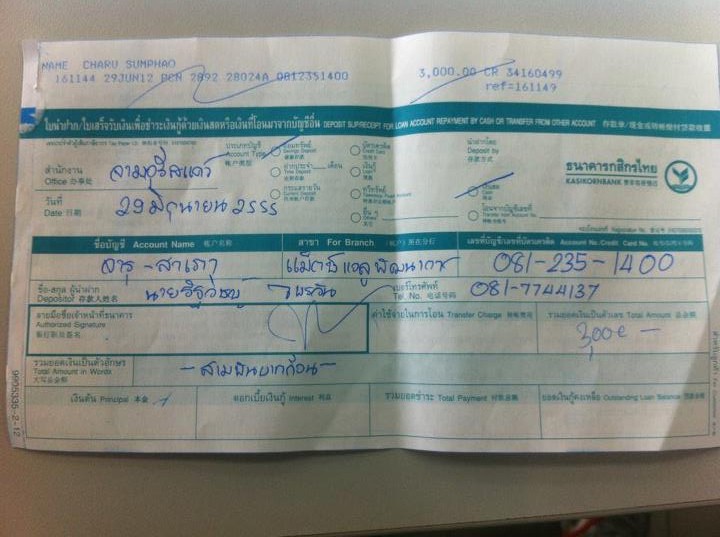 NAME CHARU SUMPHAO
161144 29JUN12 PCN 2892 28024A 0812351400 3,000.00 CR 34160499
ref=161149
ใบนำฝาก/ใบเสร็จรับเงินเพื่อชำระเงินกู้ด้วยเงินสดหรือเงินที่โอนมาจากบัญชีอื่น DEPOSIT SLIP/RECEIPT FOR LOAN ACCOUNT REPAYMENT BY CASH OR TRANSFER FROM OTHER ACCOUNT
ประเภทบัญชี Account Type 帐户类型
ออมทรัพย์ Savings Deposit
บัตรเครดิต Credit Card
ฝากประจำ เดือน Time Deposit
เงินกู้ Loan
กระแสรายวัน Current Deposit
อื่น ๆ Others
นำฝากโดย Deposit by 存款方式
เงินสด Cash
โอนจากบัญชีเลขที่
ธนาคารกสิกรไทย
KASIKORNBANK 泰华农民银行
สำนักงาน Office 办事处
วันที่ Date 日期 29 มิถุนายน 2555
ชื่อบัญชี Account Name 帐户名称 สาขา For Branch (帐户) 所在分行 เลขที่บัญชี/เลขที่บัตรเครดิต Account No./Credit Card No.
จารุ - สำเภา 081-235-1400
ชื่อ-สกุล ผู้นำฝาก Depositor 存款人姓名 เบอร์โทรศัพท์ Tel. No. 电话号码 081-7744137
ลายมือชื่อเจ้าหน้าที่ธนาคาร Authorized Signature 银行职员签名 ค่าใช้จ่ายในการโอน Transfer Charge รวมยอดเงินเป็นตัวเลข Total Amount 总金额
3,000 -
รวมยอดเงินเป็นตัวอักษร Total Amount in Words 大写总金额 - สามพันบาทถ้วน -
เงินต้น Principal 本金 ดอกเบี้ยเงินกู้ Interest รวมยอดชำระ Total Payment ยอดเงินกู้คงเหลือ Outstanding Loan Balance